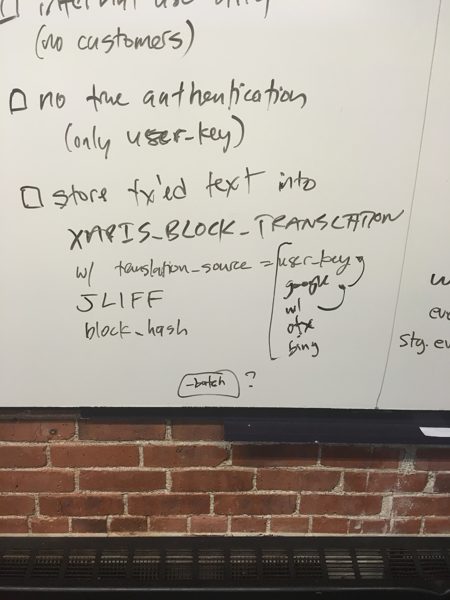 internal use only
(no customers)
no true authentication
(only user-key)
store tx'ed text into
XAPIS_BLOCK_TRANSLATION
w/ translation_source = user_key
google
w/
otx
bing
JLIFF
block_hash
-batch ?
Stg.